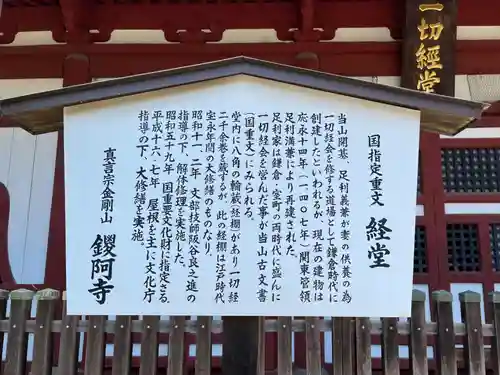 一切經堂
国指定重文 経堂
当山開基、足利義兼が妻の供養の為
一切経会を修する道場として鎌倉時代に
創建したといわれるが、現在の建物は
応永十四年(一四〇七年)関東管領
足利満兼により再建された。
足利家は鎌倉・室町の両時代に盛んに
一切経会を営んだ事が当山古文書
(国重文)にみられる。
堂内に八角の輪蔵(経棚)があり一切経
二千余巻を蔵るが、此の経棚は江戸時代
宝永年間の大修繕のものなり。
昭和十一、二年、文部技師阪谷良之進の
指導の下、解体修理を実施した。
昭和五十九年、国重要文化財に指定さる。
平成十六、七年、屋根を主に文化庁
指導の下、大修繕を実施。
真言宗金剛山 鑁阿寺